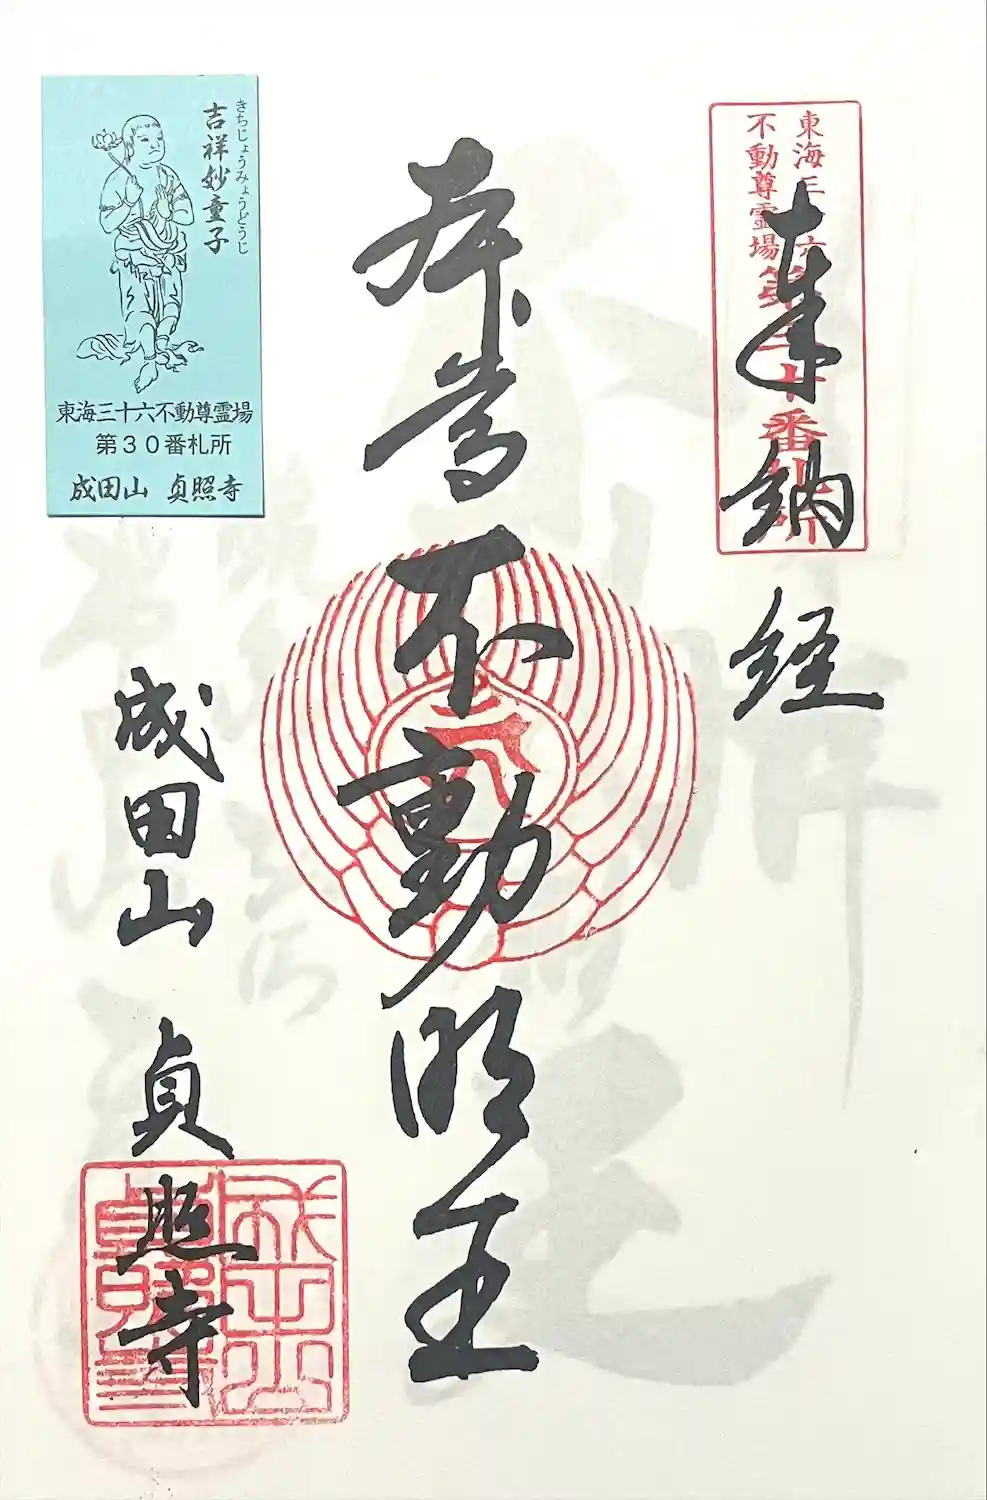 東海三十六
不動尊霊場
第三十番札所
奉納経
本尊不動明王
成田山 貞照寺
成田山
貞照寺
きちじょうみょうどうじ
吉祥妙童子
東海三十六不動尊霊場
第30番札所
成田山 貞照寺